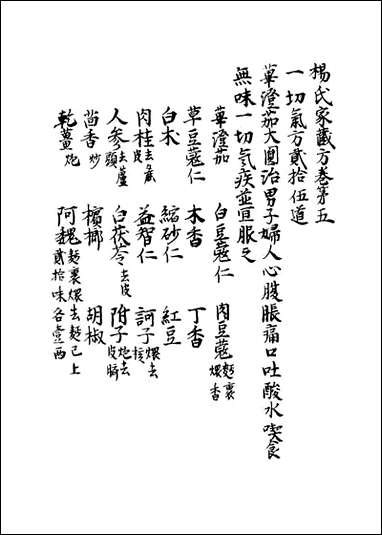 楊氏家藏方卷第五
一切氣方貳拾伍道
蓽澄茄大圓治男子婦人心腹脹痛口吐酸水喫食
無味一切氣疾並宜服之
蓽澄茄 白豆蔻仁 肉豆蔻麪裹煨香
草豆蔻仁 木香 丁香
白朮 縮砂仁 紅豆
肉桂去麄皮 益智仁 訶子煨去核
人參去蘆頭 白茯苓去皮 附子炮去皮臍
茴香炒 檳榔 胡椒
乾薑炮 阿魏麪裹煨去麪已上貳拾味各壹兩